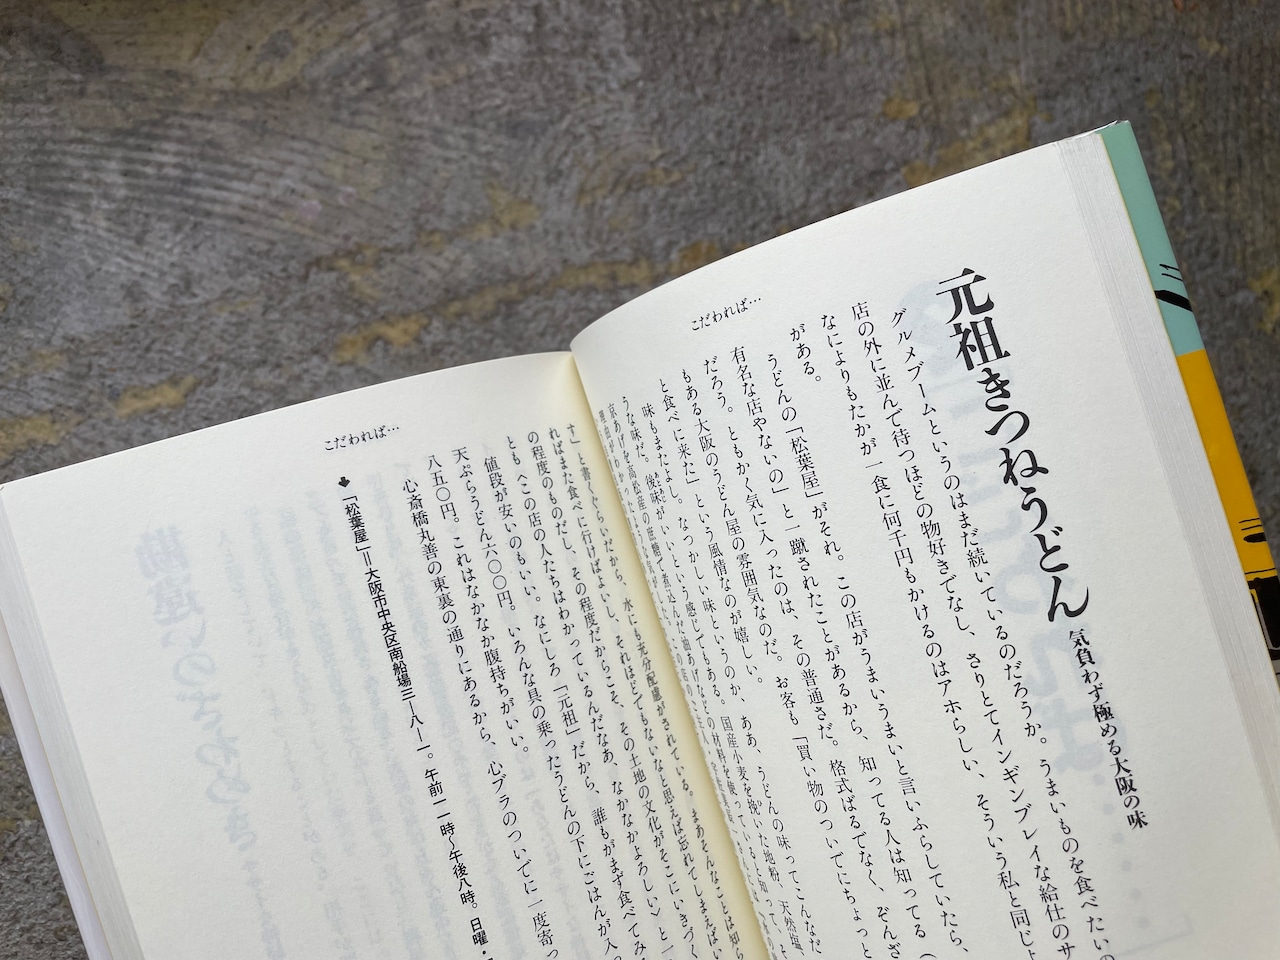 こだわれば…
元祖きつねうどん
気負わず極める大阪の味
グルメブームというのはまだ続いているのだろうか。うまいものを食べたいの
店の外に並んで待つほどの物好きでなし、さりとてインギンブレイな給仕のサ
なによりもたかが一食に何千円もかけるのはアホらしい、そういう私と同じよ
がある。
うどんの「松葉屋」がそれ。この店がうまいうまいと言いふらしていたら、
有名な店やないの」と一蹴されたことがあるから、知ってる人は知ってる（
だろう。ともかく気に入ったのは、その普通さだ。格式ばるでなく、ぞんざ
もある大阪のうどん屋の雰囲気なのだ。お客も「買い物のついでにちょっと
と食べに来た」という風情なのが嬉しい。
味もまたよし。なつかしい味というのか、ああ、うどんの味ってこんなだ
うな味だ。後味がいいという感じでもある。国産小麦を挽いた地粉、天然塩、
京あげを高松産の
す」と書くぐらいだから、水にも充分配慮がされている。まあそんなことは知ら
ればまた食べに行けばよいし、それほどでもないなと思えば忘れてしまえばい
の程度のものだし、その程度だからこそ、その土地の文化がそこにいきづく
とも〈この店の人たちはわかっているんだなあ、なかなかよろしい〉と
値段が安いのもいい。なにしろ「元祖」だから、誰もがまず食べてみ
天ぷらうどん六〇〇円。いろんな具の乗ったうどんの下にごはんが入っ
八五〇円。これはなかなか腹持ちがいい。
心斎橋丸善の東裏の通りにあるから、心ブラのついでに一度寄っ
「松葉屋」＝大阪市中央区南船場三―八―一。午前一一時～午後八時。日曜・
こだわれば…